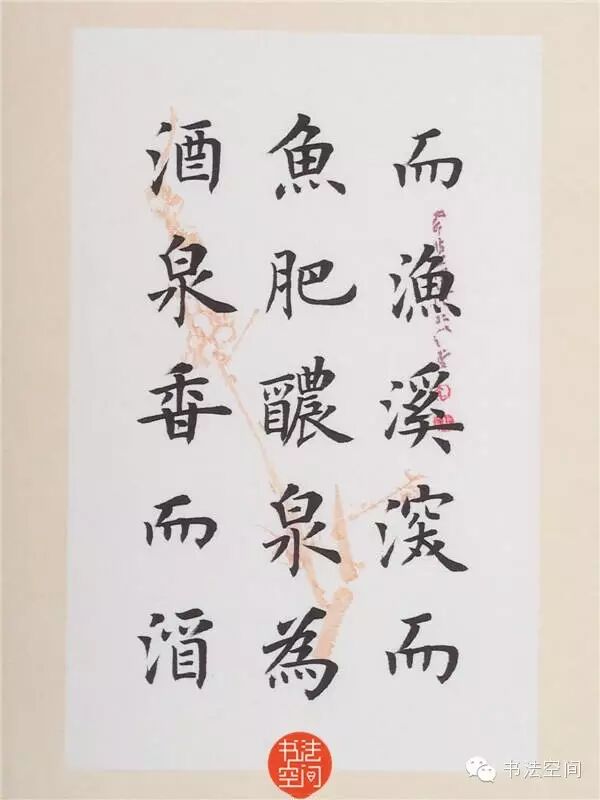 而漁溪深而
魚肥醲泉為
酒泉香而酒
书法空间
书法空间